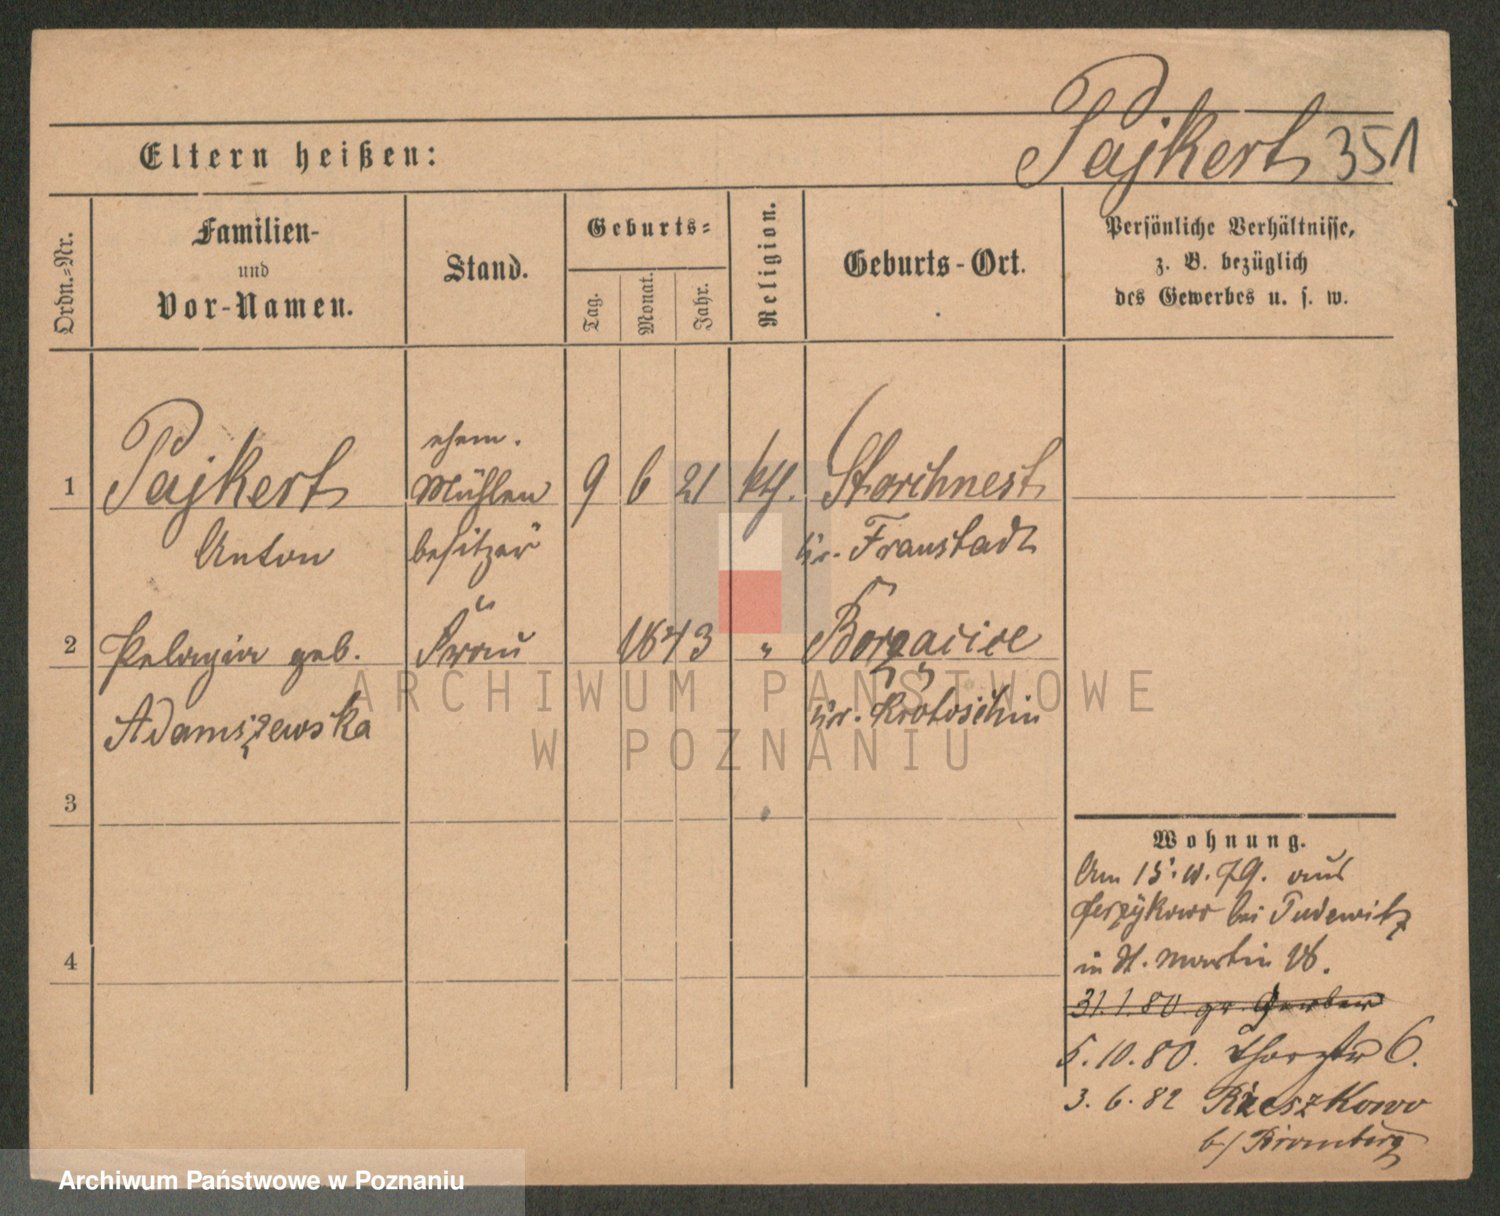 Pajkert 351
Eltern heißen:
Ordn.-Nr.
Familien-
und
Vor-Namen.
Stand.
Geburts-
Tag.
Monat.
Jahr.
Religion.
Geburts-Ort.
Persönliche Verhältnisse,
z. B. bezüglich
des Gewerbes u. s. w.
1
Pajkert
Anton
ehem.
Mühlen
besitzer
9 6 21 kth.
Storchnest
Kr. Fraustadt
2
Pelagia geb.
Adamszewska
Frau
1843 "
Borzacice
Kr. Krotoschin
3
4
Wohnung.
Am 15. 11. 79. aus
Jerzykowo bei Pudewitz
in St. Martin 18.
31.1.80. gr. Gerber
5.10.80. 6.
3.6.82 Rzeszkowo
b/ Bromberg
ARCHIWUM PAŃSTWOWE
W POZNANIU
Archiwum Państwowe w Poznaniu